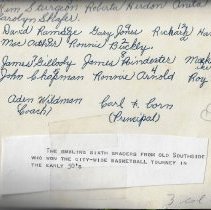 Kim Sturgeon Roberta Herdon Anita
Carolyn Shafer
David Ramage Gary Jones Richard
Mac Arthur Ronnie Buckley
James Gillody James Poindexter Mack
John Chapman Ronnie Arnold Roy
Aden Wildman Carl F. Corn
(Coach) (Principal)
THE SMILING SIXTH GRADERS FROM OLD SOUTHSIDE
WHO WON THE CITY-WIDE BASKETBALL TOURNEY IN
THE EARLY 50's